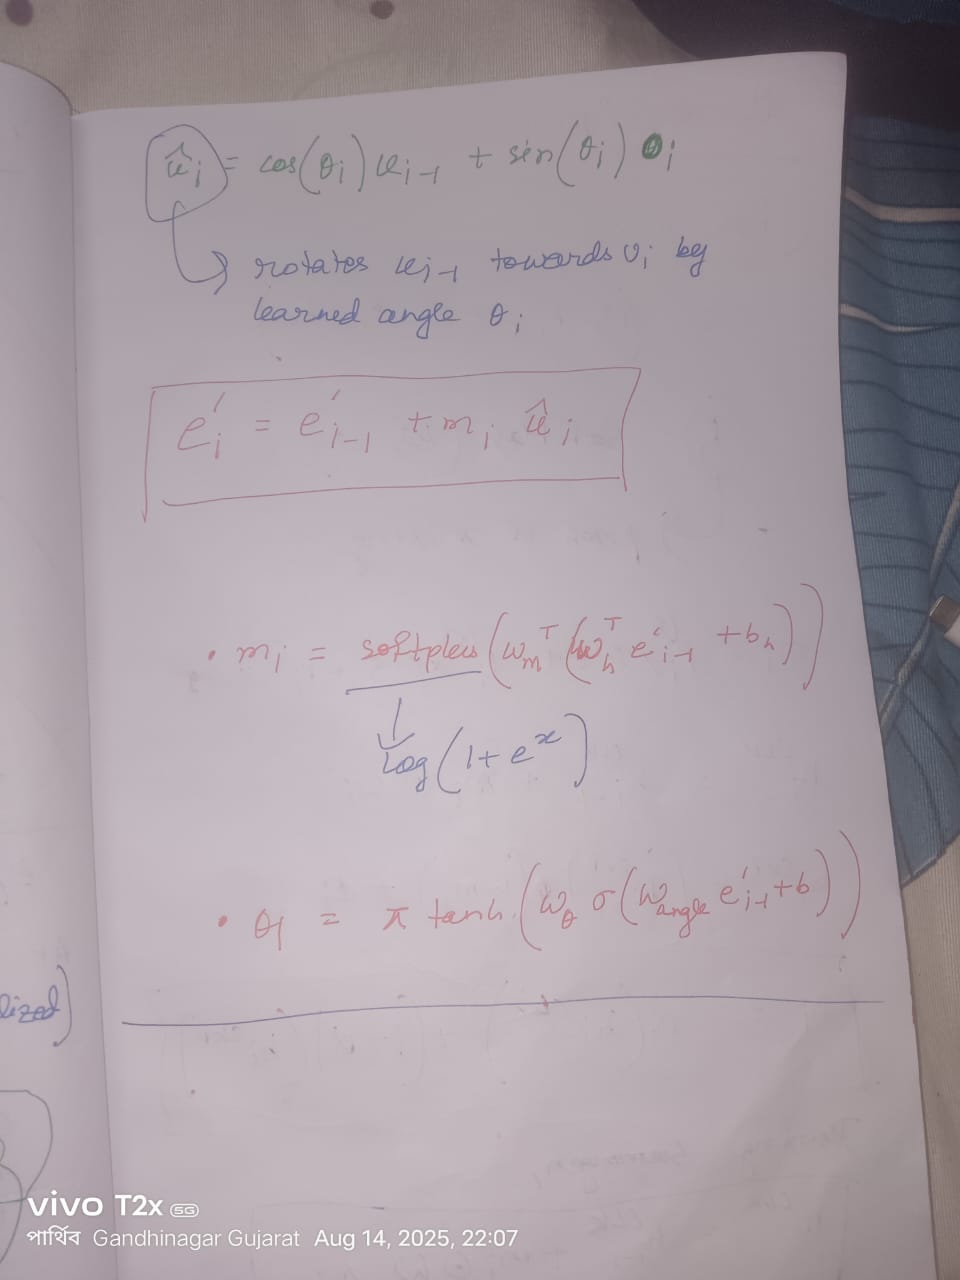 û_i = cos(θ_i) u_{i-1} + sin(θ_i) v_i
→ rotates u_{i-1} towards v_i by
learned angle θ_i
e'_i = e'_{i-1} + m_i û_i
• m_i = softplus(w_m^T (w_h^T e'_{i-1} + b_h))
↓
log(1 + e^x)
• θ_i = π tanh(w_θ σ(w_angle e'_{i-1} + b))
lized)
vivo T2x 5G
পার্থিব Gandhinagar Gujarat Aug 14, 2025, 22:07